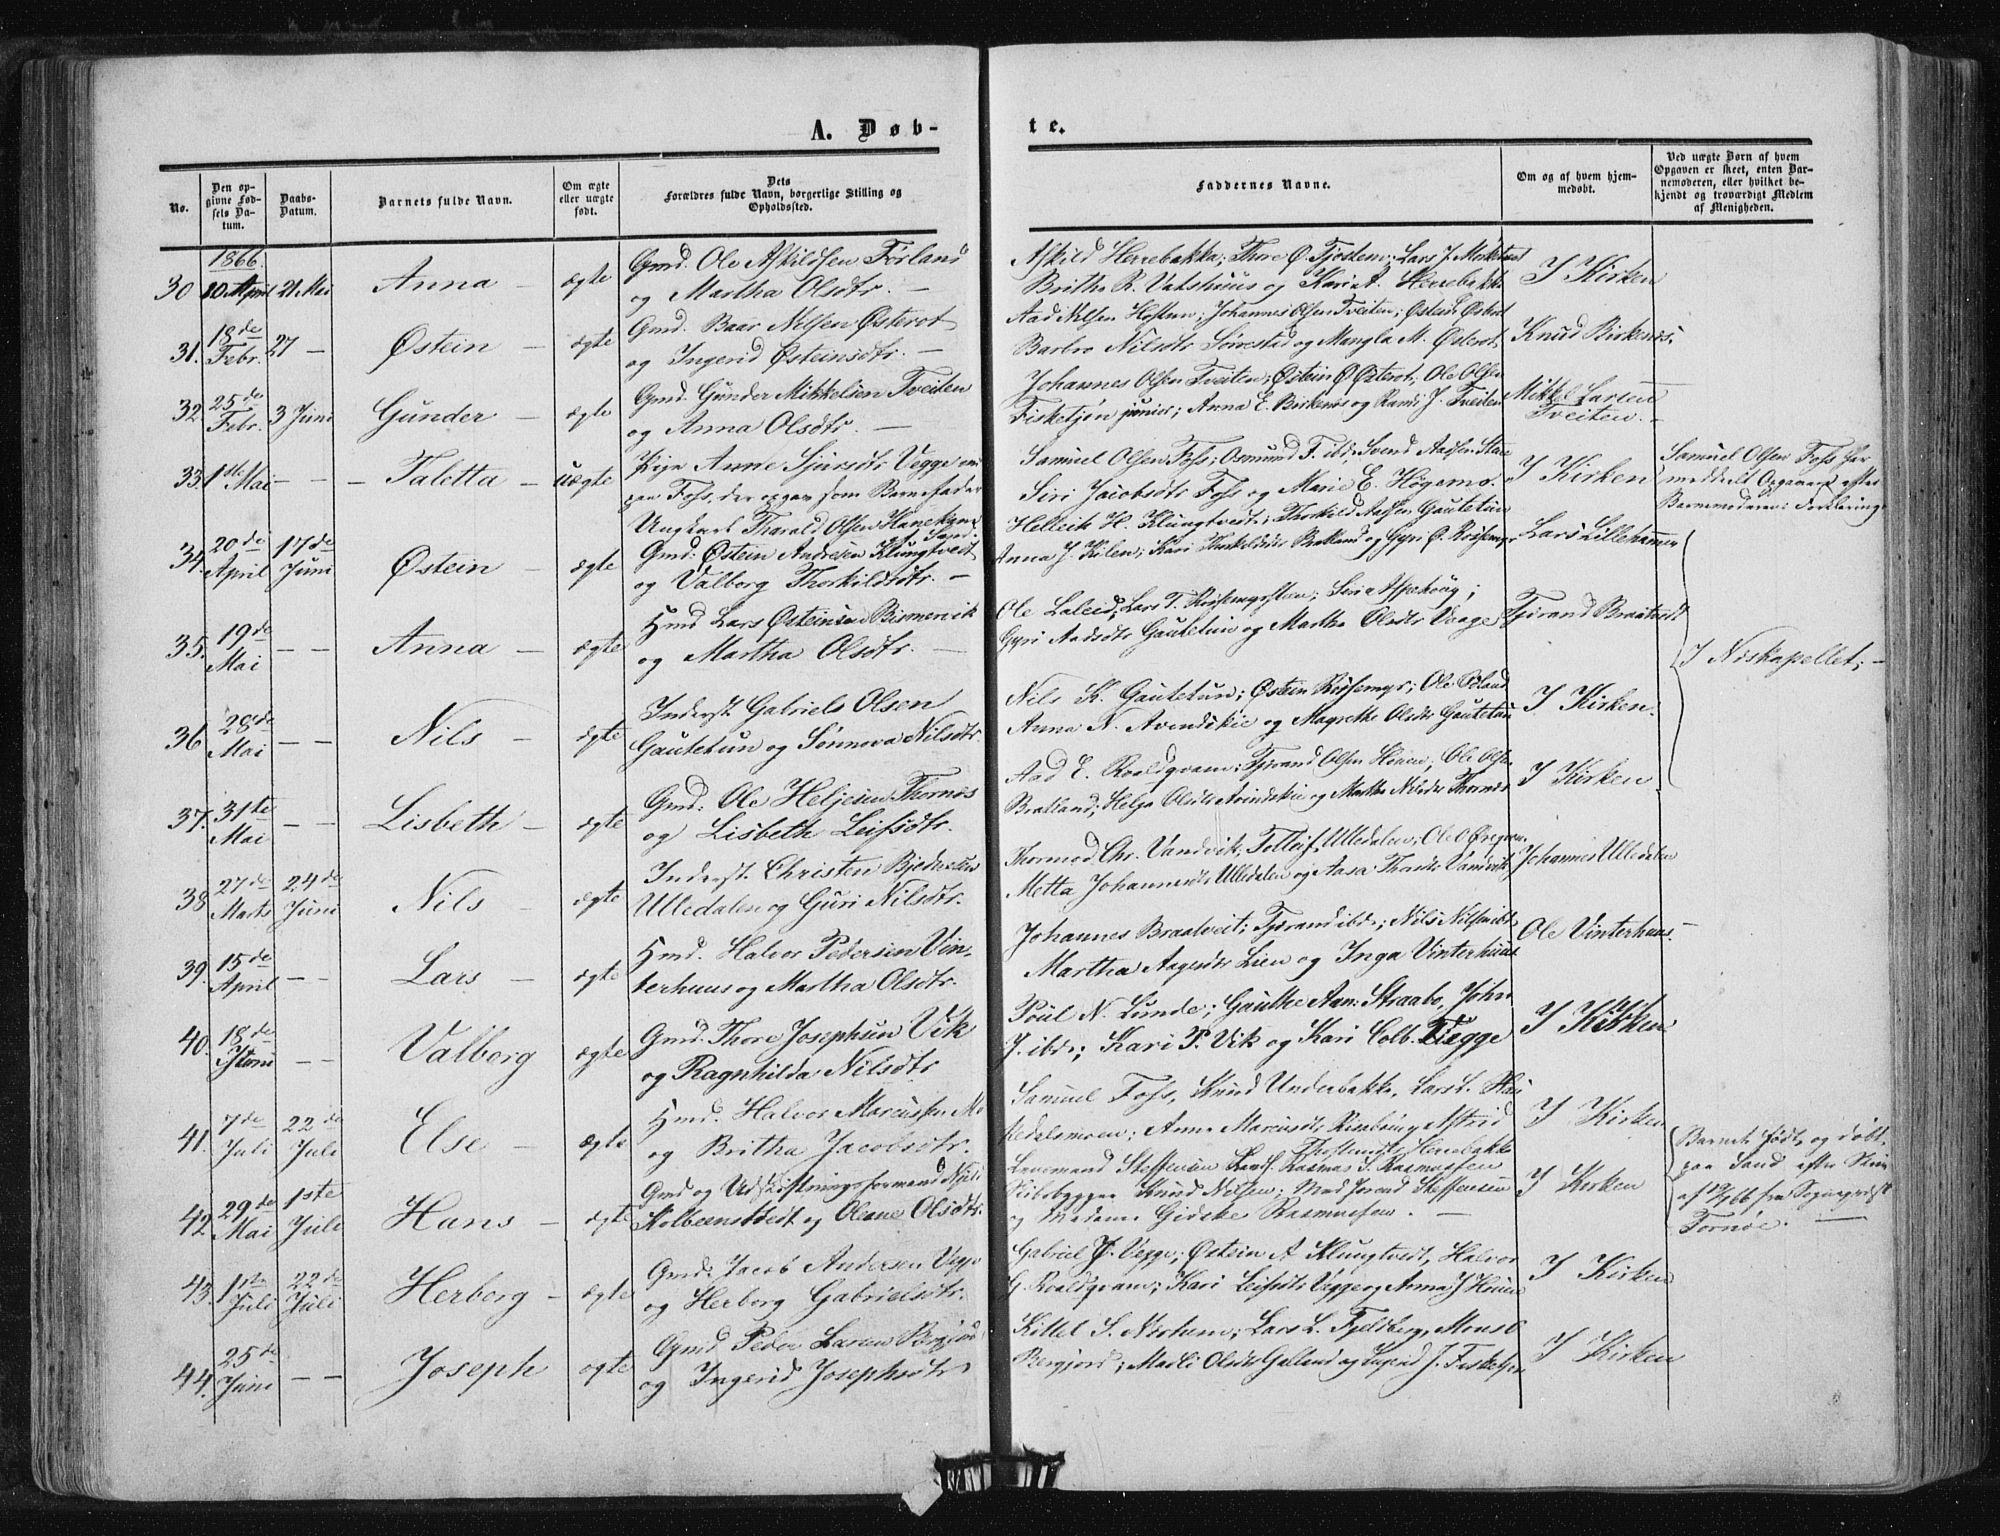 A. Døb-
te.
No.
Den op-
givne Fød-
sels Da-
tum.
Daabs-
Datum.
Barnets fulde Navn.
Om ægte
eller uægte
født.
Dets
Forældres fulde Navn, borgerlige Stilling og
Opholdssted.
Faddernes Navne.
Om og af hvem hjem-
medøbt.
Ved uægte Børn af hvem
Opgaven er skeet, enten Bar-
nemoderen, eller hvilket be-
kjendt og troværdigt Medlem
af Menigheden.
1866.
30 10 April 21 Mai Anna – ægte
Gmd. Ole Askildsen Førland
og Martha Olsdtr. –
Askild Herrebakka; Thore Ø. Tjostem; Lars J.
Britha R. Vatshuus og Kari A. Herrebakka
I Kirken
31. 18de Febr. 27 – Østein – ægte
Gmd. Baar Nilsen Østerot
og Ingerid Østeinsdtr. –
Aad Nilsen; Johannes Olsen Tveiten; Østein Østerot
Barbro Nilsdtr Sørrestad og Mangla M. Østerot
Knud Birkenæs.
32. 25de Febr. 3 Juni Gunder – ægte
Gmd. Gunder Mikkelsen Tveiten
og Anna Olsdtr. –
Johannes Olsen Tveiten; Østein Ø Østerot, Ole Olsen
Fisketjøn junior; Anna E. Birkenæs og Randi J. Tveiten
Mikkel Larsen
Tveiten. –
33. 1ste Mai – – – Taletta – uægte
Pige Anne Sjursdtr Vegge
paa Foss, der opgav som Barnefader
Ungkarl Tharald Olsen Hanekam
Sand.
Samuel Olsen Foss; Osmund F. ibd; Svend Aadsen Stare
Siri Jacobsdtr Foss og Marie E. Høgemo.
I Kirken
Samuel Olsen Foss har
meddelt Opgaven efter
Barnemoderens
34. 20de April 17de Juni Østein – ægte
Gmd: Østein Andresen Klungtvedt
og Valborg Thorkildsdtr. –
Helleik H. Klungtvedt; Thorkild Aadsen Gautetun
Anna J. Kilen; Kari Thorkildsdtr Bratland og Gyri Ø. Røssemyr
Lars Lillehammer
35. 19de Mai – – Anna – ægte
Hmd Lars Østeinsen Binnervik
og Martha Olsdtr. –
Ole Laleid; Lars T.; Siri Aspehoug;
Gyri Aadsdtr Gautetun og Martha Olsdtr Vaage
Tjerand Braatveit
I Niskapellet; –
36. 28de Mai – – Nils – ægte
Inderst. Gabriels Olsen
Gautetun og Sønnova Nilsdtr.
Nils K. Gautetun; Østein Røssemyr; Ole
Anna N. og Magrethe Olsdtr Gautetun
I Kirken.
37. 31te Mai – – Lisbeth – ægte
Gmd: Ole Heljesen Thornæs
og Lisbeth Leifsdtr.
Aad E. Roaldqvam; Tjerand Olsen; Ole Olsen
Bratland; Helga Olsdtr og Martha Nilsdtr Thornæs
I Kirken.
38. 27de Marts 24de Juni Nils – ægte
Inderst. Christen
Ulledalen og Guri Nilsdtr.
Thormod Chr. Vandvik, Tolleif Ulledalen, Ole O.
Metta Johannesdtr Ulledalen og Aasa Thoresdtr Vandvik
Johannes Ulledalen
39. 15de April – – Lars – ægte
Hmd. Halvor Pedersen Vin-
terhuus og Martha Olsdtr.
Johannes Braatveit; Tjerand ibd; Nils Nilsen ibd.
Martha Aagesdtr Lien og Inga Vinterhuus
Ole Vinterhuus.
40. 18de Juni – – Valborg ægte
Gmd. Thore Josephsen Vik
og Ragnhilda Nilsdtr
Poul N. Lunde; Gauthe Aan. Straabø, John
J. ibd; Kari P. Vik og Kari Colb. Vegge
I Kirken
41. 7de Juli 22de Juli Else – ægte
Hmd. Halvor Marcussen Mo
og Britha Jacobsdtr.
Samuel Foss, Knud Underbakke, Lars L. Hau-
kedalsmoen; Anne Marcusdtr og Astrid
Thostensdtr Herrebakke
I Kirken
42. 29de Mai 1ste Juli Hans – ægte
Gmd og Udskiftningsformand
Kolbeensttedt og Oleane Olsdtr.
Lensmand Steffensen Sand. Rasmus S. Rasmussen
Skibsbygger Knud Nilsen; Mad. Steffensen
og Madam Gidske Rasmussen. –
I Kirken
Barnet født og døbt
paa Sand efter
fra Sognepræst
Tornøe. –
43. 1ste Juli 22de Juli Herborg – ægte
Gmd: Jacob Andersen Vegge
og Herborg Gabrielsdtr.
Gabriel J. Vegge; Østein A Klungtvedt, Halvor
G. Roaldqvam; Kari Leifsdtr Vegge og Anna J
I Kirken
44. 25de Juni – – Joseph ægte
Gmd Peder Larsen Bergjord
og Ingerid Josephsdtr
Kittel S. Nærheim; Lars L. Fjeldberg, Mons O
Bergjord; Madli Olsdtr Galland og Ingrid J.
I Kirken